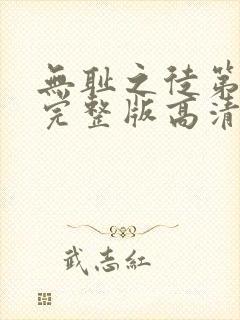 無耻之徒第
完整版高清
武志紅